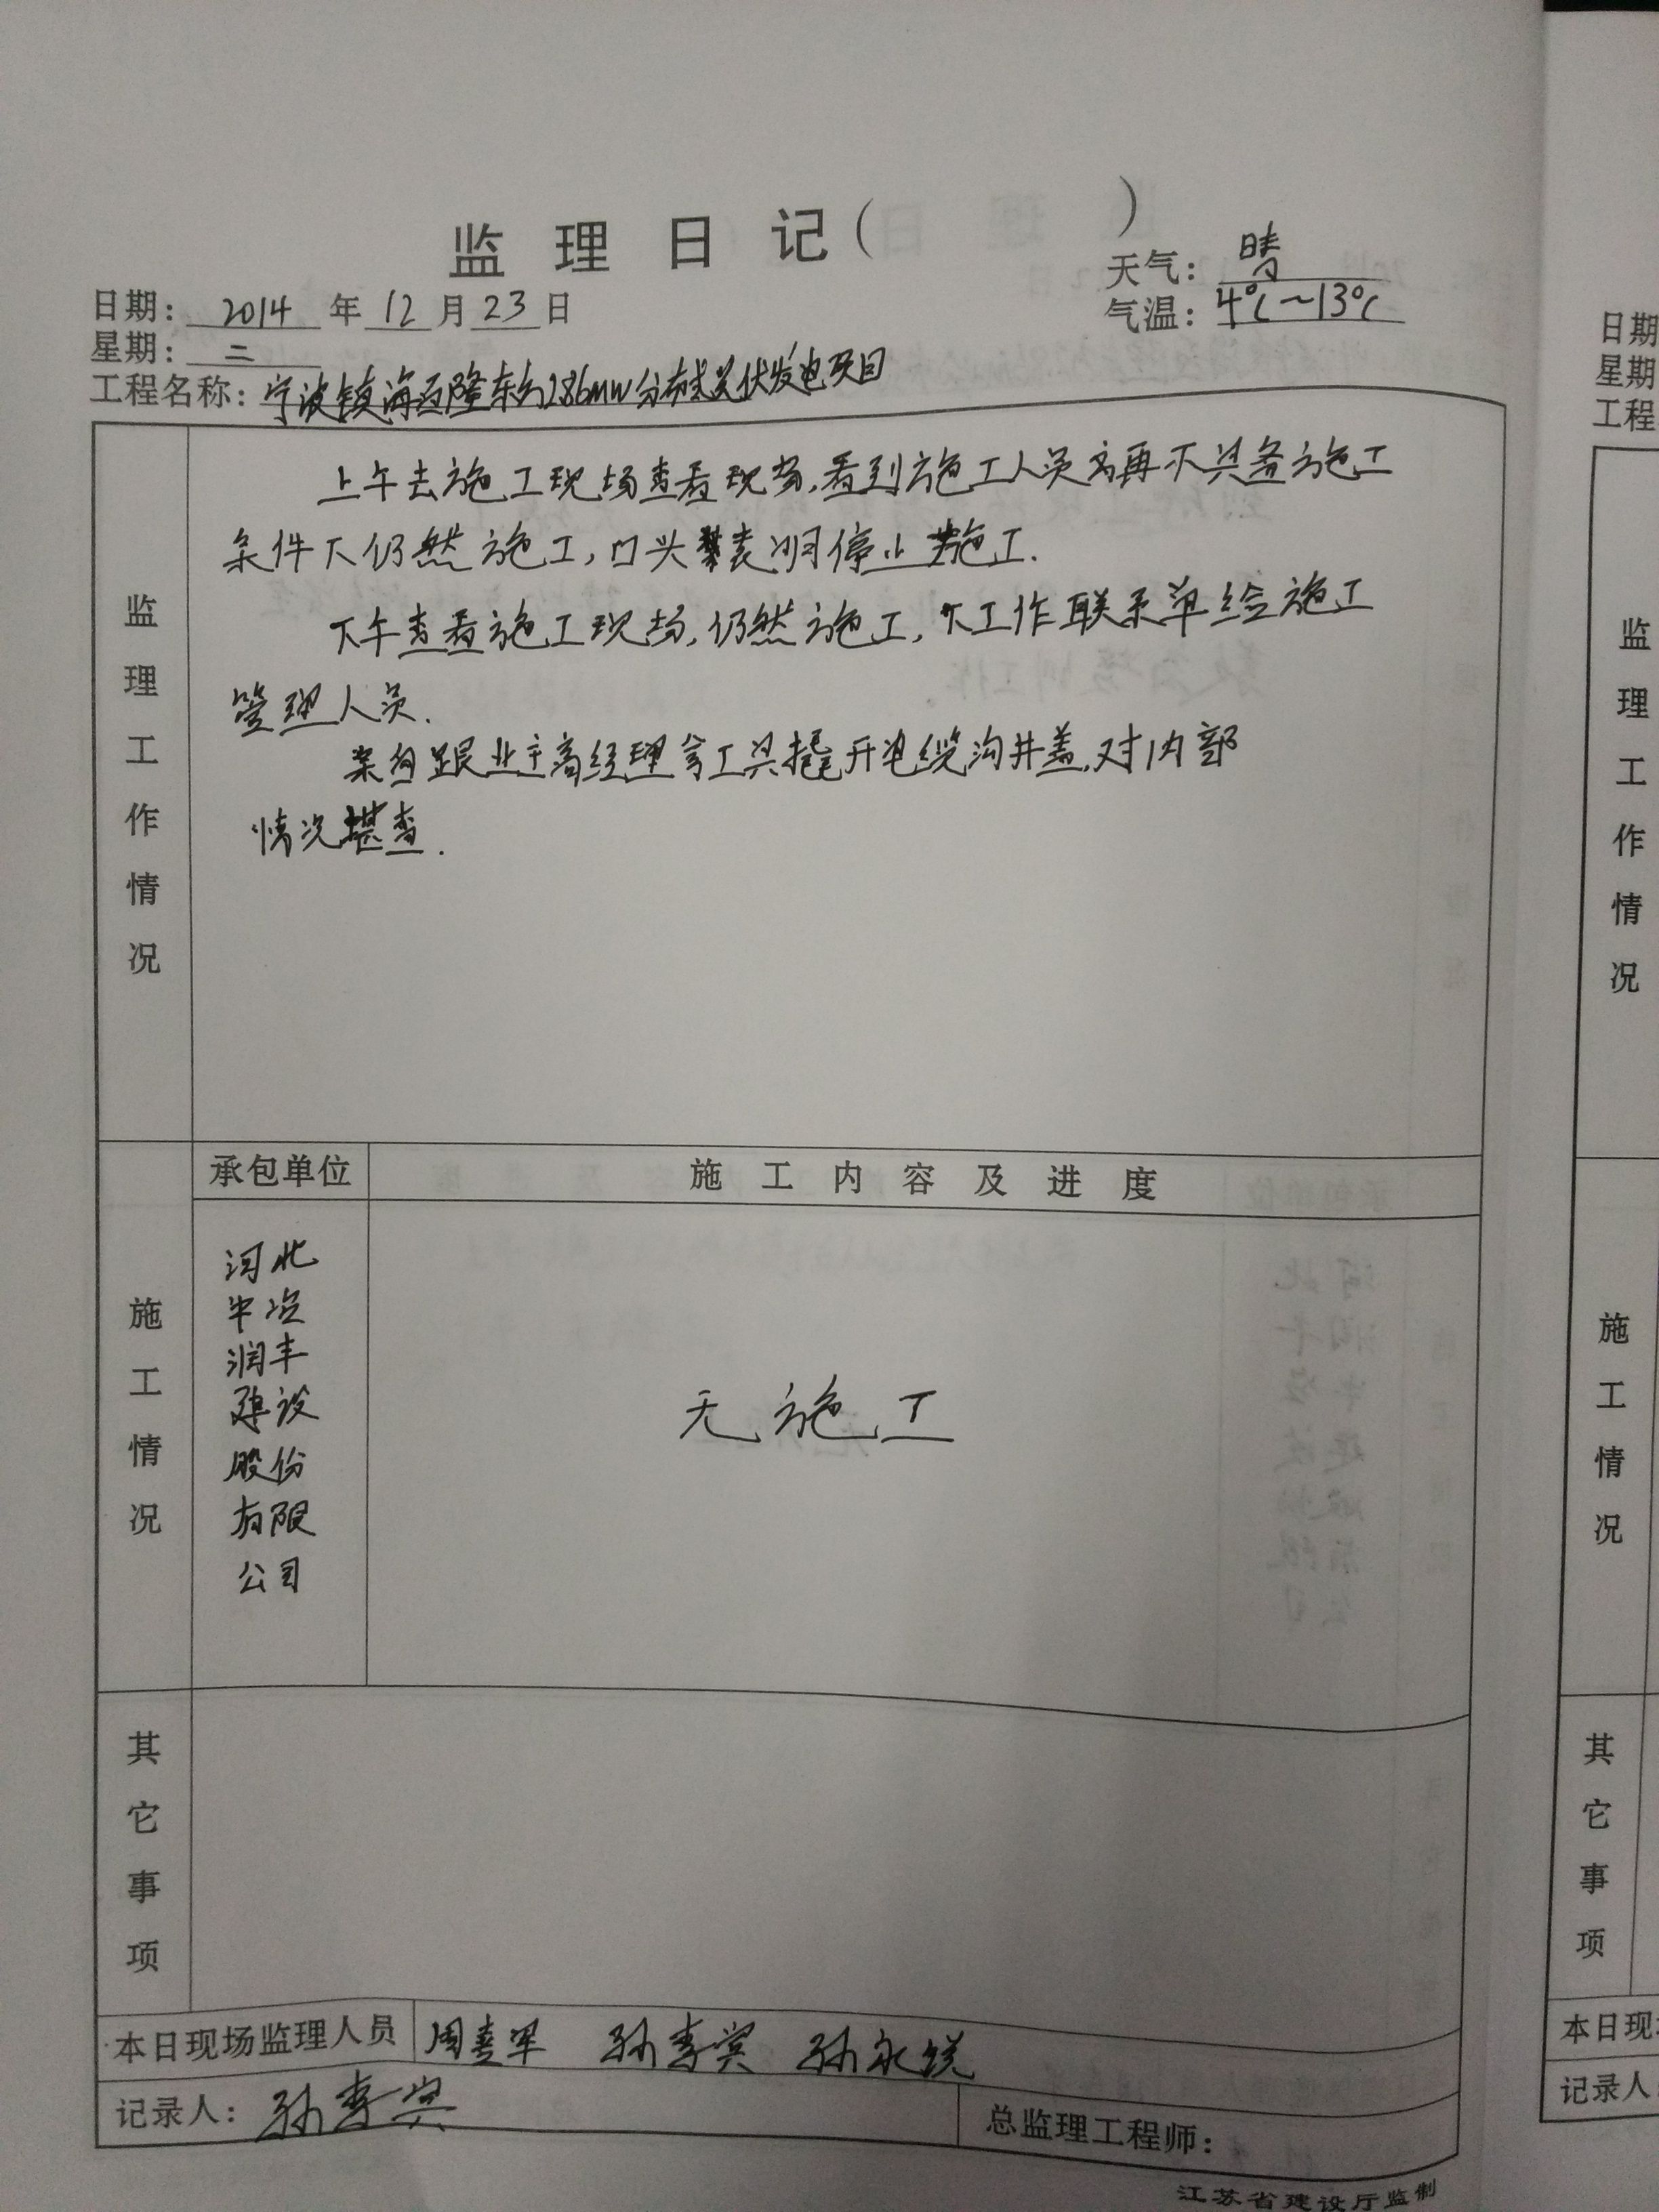 监理日记( )
天气: 晴
日期: 2014 年 12 月 23 日
气温: 4℃~13℃
星期: 二
工程名称: 宁波镇海西隆东的286MW分布式光伏发电项目
监理工作情况
上午去施工现场查看现场,看到施工人员再不具备施工
条件下仍然施工,口头表明停止施工.
下午查看施工现场,仍然施工,下工作联系单给施工
管理人员.
跟业主高经理拿工具撬开电缆沟井盖,对内部
情况堪查.
承包单位
施工内容及进度
施工情况
河北
润丰
建设
股份
有限
公司
无施工
其它事项
本日现场监理人员 周喜军 孙孝宾 孙永悦
记录人: 孙孝宾
总监理工程师:
江苏省建设厅监制
日期
星期
工程
监理工作情况
施工情况
其它事项
本日现
记录人